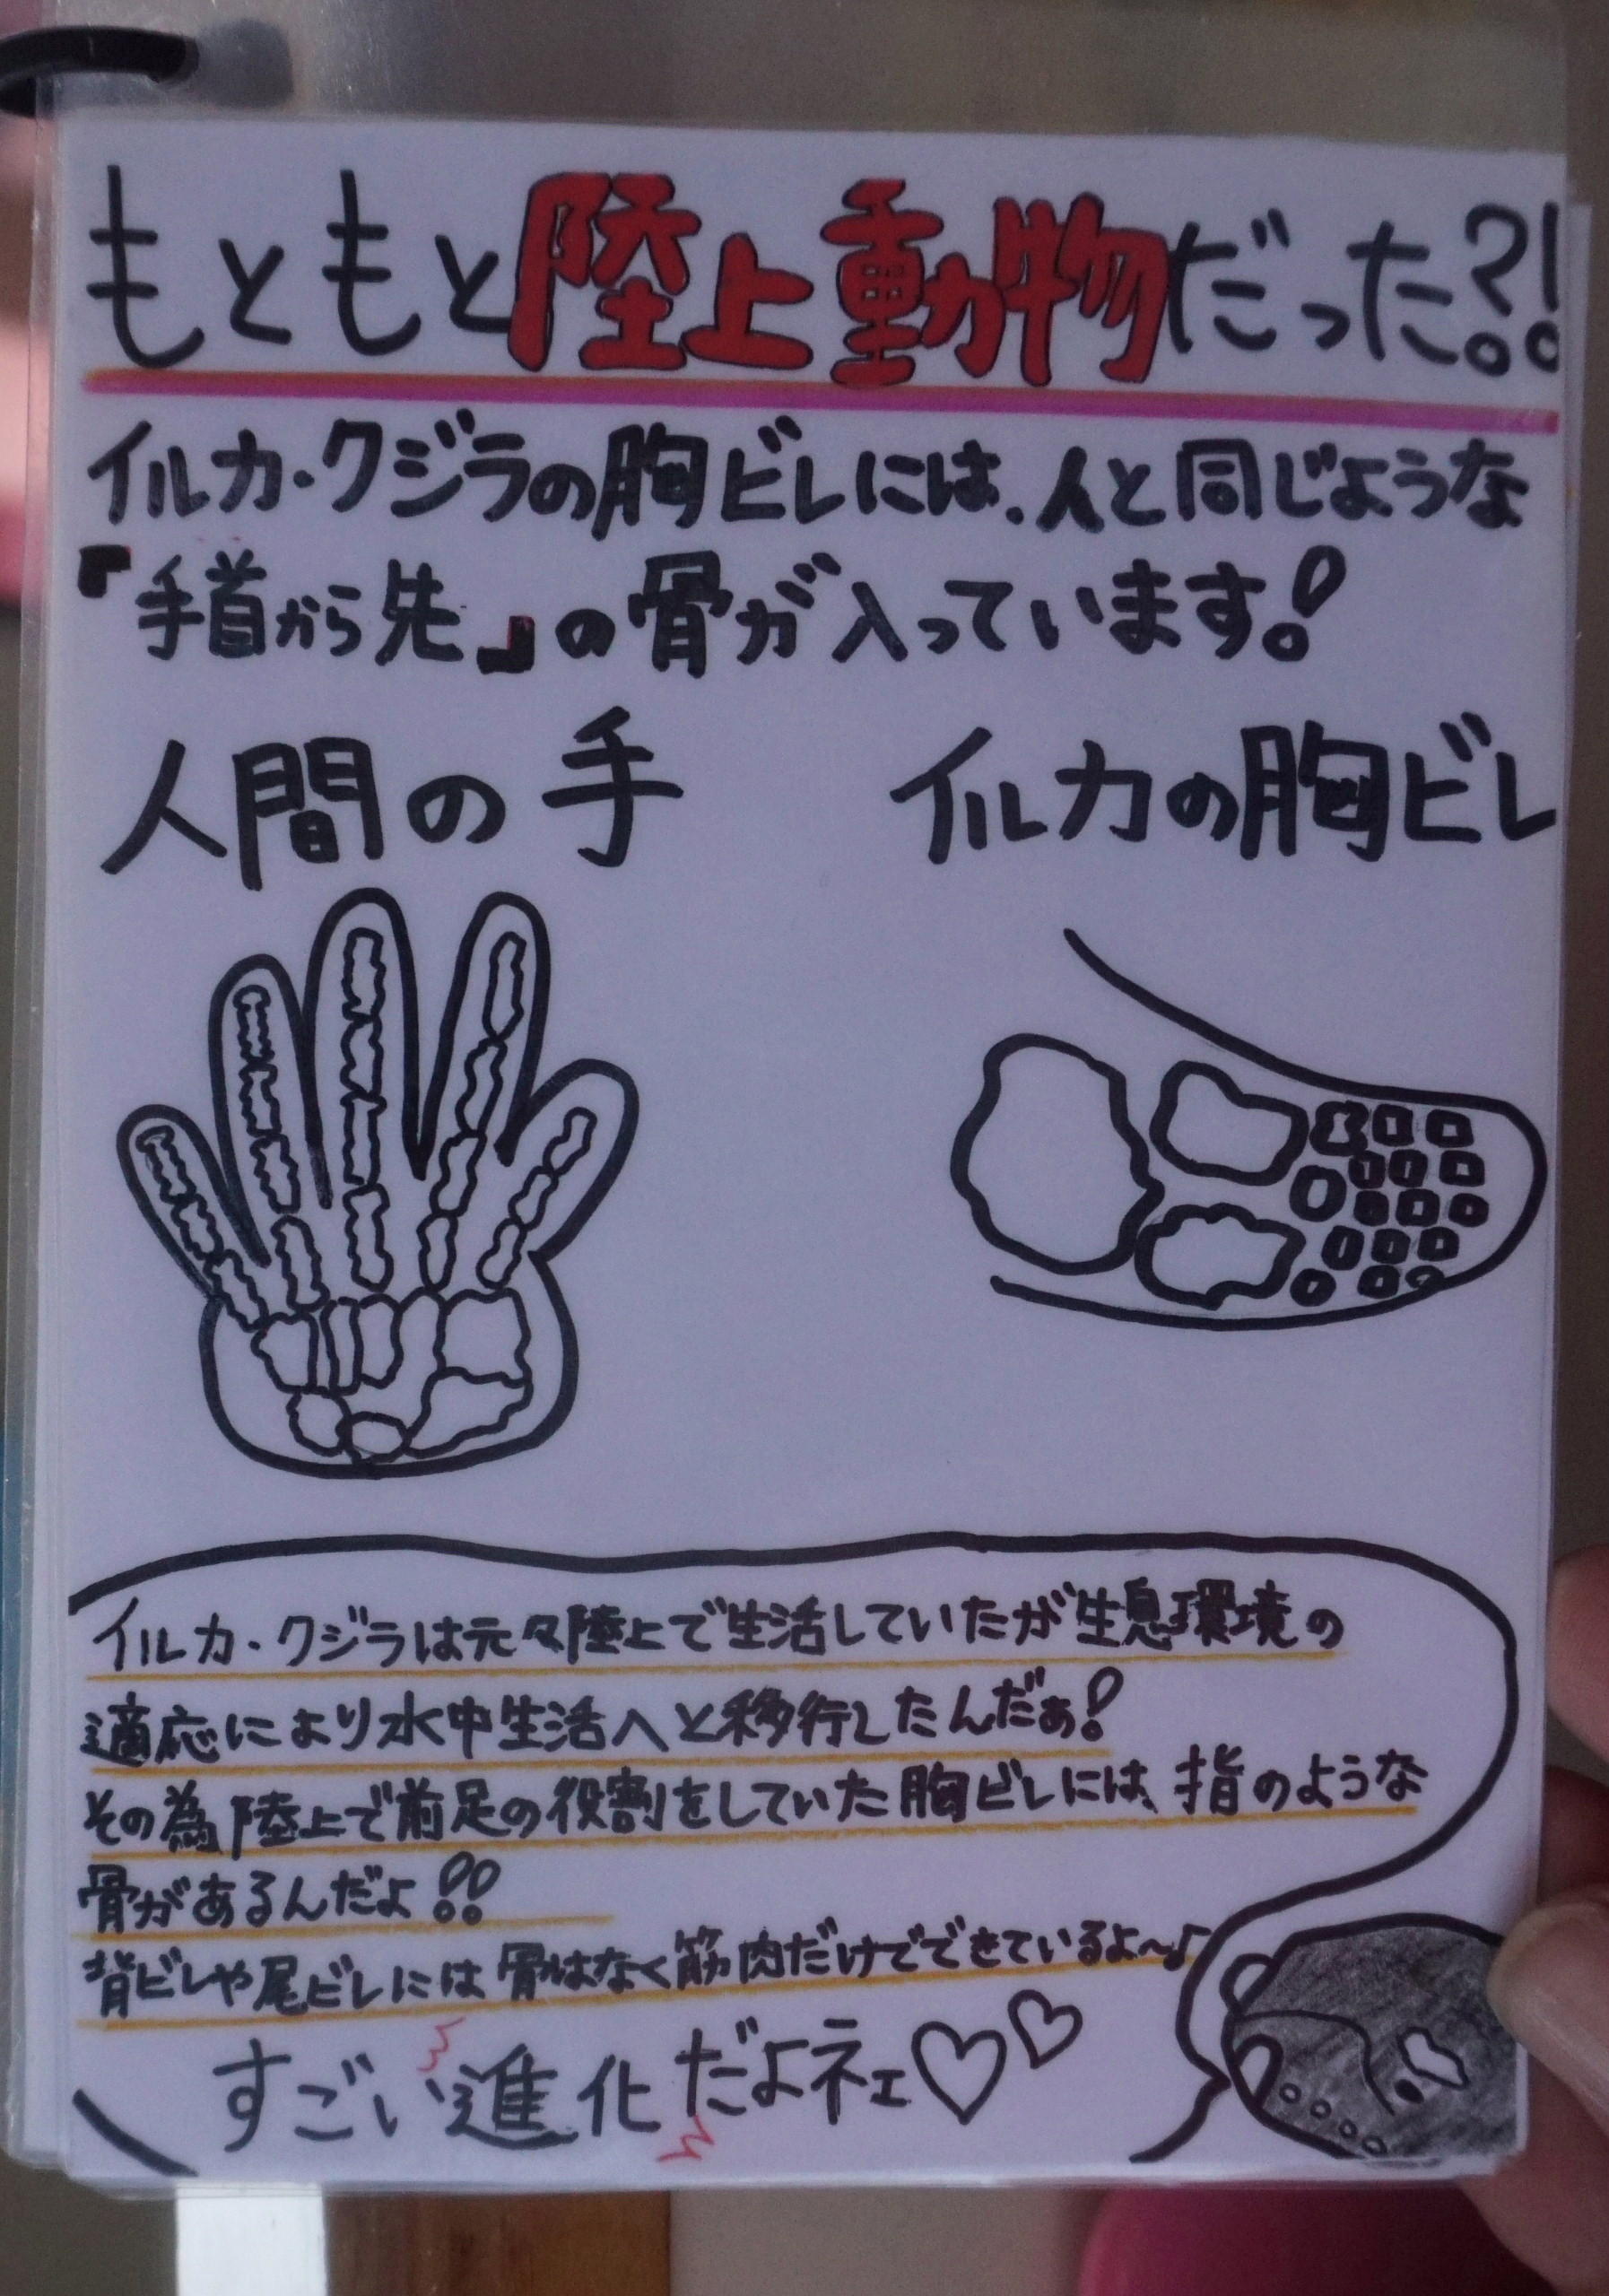 もともと陸上動物だった?!
イルカ・クジラの胸ビレには、人と同じような
『手首から先』の骨が入っています!
人間の手
イルカの胸ビレ
イルカ・クジラは元々陸上で生活していたが生息環境の
適応により水中生活へと移行したんだぁ!
その為陸上で前足の役割をしていた胸ビレには、指のような
骨があるんだよ!!
背ビレや尾ビレには骨はなく筋肉だけでできているよ〜♪
すごい進化だよネェ♡♡